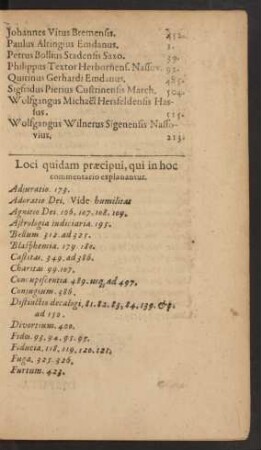 Johannes Vitus Bremensis. 252.
Paulus Altingius Emdanus. 1.
Petrus Bollius Stadensis Saxo. 39.
Philippus Textor Herbornens. Nassov. 92.
Quirinus Gerhardi Emdanus. 485.
Sigfridus Pierius Custrinensis March. 504.
Wolfgangus Michaël Hersfeldensis Has-
sus. 525.
Wolfgangus Wilnerus Sigenensis Nasso-
vius. 223.
Loci quidam præcipui, qui in hoc
commentario explanantur.
Adjuratio. 173.
Adoratio Dei. Vide humilitas
Agnitio Dei. 106. 107. 108. 109.
Astrologia iudiciaria. 195.
Bellum. 312. ad 325.
Blasphemia. 179. 180.
Castitas. 349. ad 386.
Charitas 99. 107.
Concupiscentia 489. usq, ad 497.
Conjugium. 386.
Distinctio decalogi, 81. 82. 83, 84. 139. &
ad 152.
Divortium. 400.
Fides. 93. 94. 95. 97.
Fiducia. 118. 119. 120. 121.
Fuga. 325. 326.
Furtum. 423.